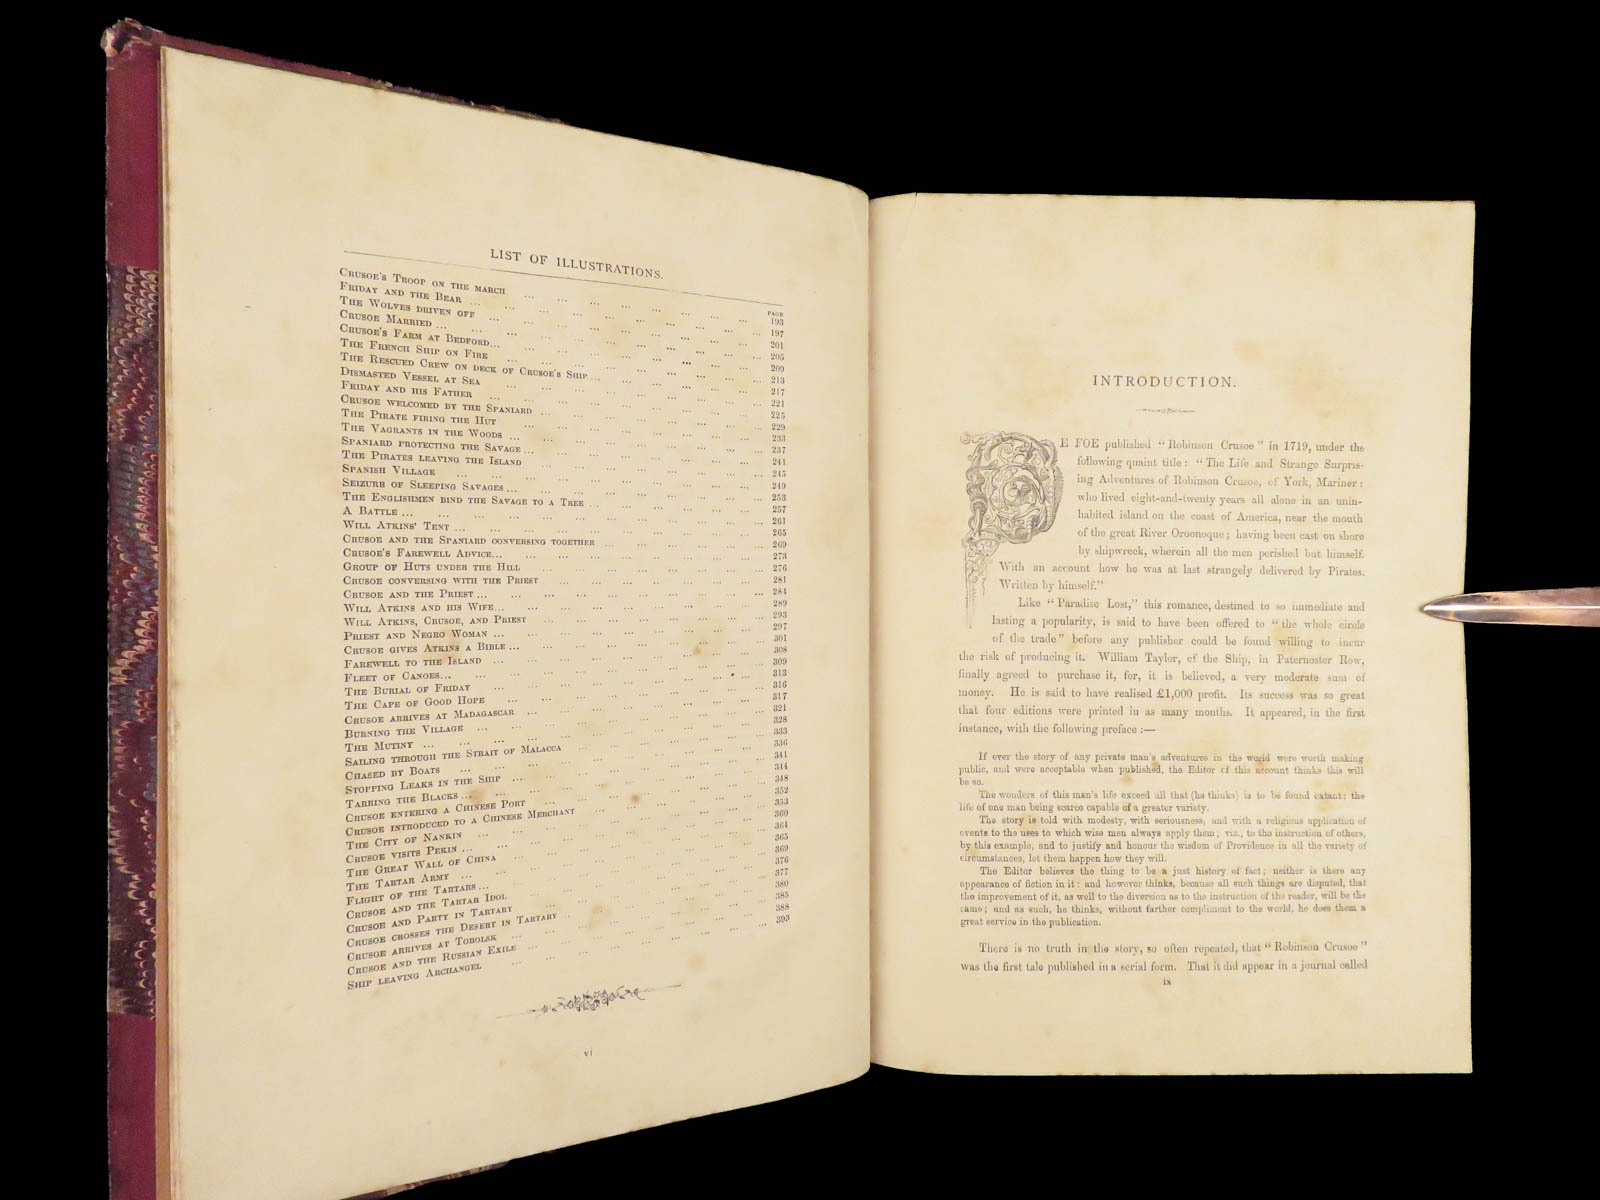 LIST OF ILLUSTRATIONS.
PAGE
CRUSOE'S TROOP ON THE MARCH ... 193
FRIDAY AND THE BEAR ... 197
THE WOLVES DRIVEN OFF ... 201
CRUSOE MARRIED ... 205
CRUSOE'S FARM AT BEDFORD... 209
THE FRENCH SHIP ON FIRE ... 213
THE RESCUED CREW ON DECK OF CRUSOE'S SHIP ... 217
DISMASTED VESSEL AT SEA ... 221
FRIDAY AND HIS FATHER ... 225
CRUSOE WELCOMED BY THE SPANIARD ... 229
THE PIRATE FIRING THE HUT ... 233
THE VAGRANTS IN THE WOODS ... 237
SPANIARD PROTECTING THE SAVAGE ... 241
THE PIRATES LEAVING THE ISLAND ... 245
SPANISH VILLAGE ... 249
SEIZURE OF SLEEPING SAVAGES ... 253
THE ENGLISHMEN BIND THE SAVAGE TO A TREE ... 257
A BATTLE ... 261
WILL ATKINS' TENT ... 265
CRUSOE AND THE SPANIARD CONVERSING TOGETHER ... 269
CRUSOE'S FAREWELL ADVICE... 273
GROUP OF HUTS UNDER THE HILL ... 276
CRUSOE CONVERSING WITH THE PRIEST ... 281
CRUSOE AND THE PRIEST ... 284
WILL ATKINS AND HIS WIFE ... 289
WILL ATKINS, CRUSOE, AND PRIEST ... 293
PRIEST AND NEGRO WOMAN ... 297
CRUSOE GIVES ATKINS A BIBLE ... 301
FAREWELL TO THE ISLAND ... 308
FLEET OF CANOES... 309
THE BURIAL OF FRIDAY ... 313
THE CAPE OF GOOD HOPE ... 316
CRUSOE ARRIVES AT MADAGASCAR ... 317
BURNING THE VILLAGE ... 321
THE MUTINY ... 328
SAILING THROUGH THE STRAIT OF MALACCA ... 333
CHASED BY BOATS ... 336
STOPPING LEAKS IN THE SHIP ... 341
TARRING THE BLACKS ... 344
CRUSOE ENTERING A CHINESE PORT ... 348
CRUSOE INTRODUCED TO A CHINESE MERCHANT ... 352
THE CITY OF NANKIN ... 353
CRUSOE VISITS PEKIN ... 360
THE GREAT WALL OF CHINA ... 364
THE TARTAR ARMY ... 365
FLIGHT OF THE TARTARS ... 369
CRUSOE AND THE TARTAR IDOL ... 376
CRUSOE AND PARTY IN TARTARY ... 377
CRUSOE CROSSES THE DESERT IN TARTARY ... 380
CRUSOE ARRIVES AT TOBOLSK ... 385
CRUSOE AND THE RUSSIAN EXILE ... 388
SHIP LEAVING ARCHANGEL ... 393
vi
INTRODUCTION.
DE FOE published "Robinson Crusoe" in 1719, under the
following quaint title: "The Life and Strange Surpris-
ing Adventures of Robinson Crusoe, of York, Mariner:
who lived eight-and-twenty years all alone in an unin-
habited island on the coast of America, near the mouth
of the great River Oroonoque; having been cast on shore
by shipwreck, wherein all the men perished but himself.
With an account how he was at last strangely delivered by Pirates.
Written by himself."
Like "Paradise Lost," this romance, destined to so immediate and
lasting a popularity, is said to have been offered to "the whole circle
of the trade" before any publisher could be found willing to incur
the risk of producing it. William Taylor, of the Ship, in Paternoster Row,
finally agreed to purchase it, for, it is believed, a very moderate sum of
money. He is said to have realised £1,000 profit. Its success was so great
that four editions were printed in as many months. It appeared, in the first
instance, with the following preface:—
If ever the story of any private man's adventures in the world were worth making
public, and were acceptable when published, the Editor of this account thinks this will
be so.
The wonders of this man's life exceed all that (he thinks) is to be found extant; the
life of one man being scarce capable of a greater variety.
The story is told with modesty, with seriousness, and with a religious application of
events to the uses to which wise men always apply them; viz., to the instruction of others,
by this example, and to justify and honour the wisdom of Providence in all the variety of
circumstances, let them happen how they will.
The Editor believes the thing to be a just history of fact; neither is there any
appearance of fiction in it: and however thinks, because all such things are disputed, that
the improvement of it, as well to the diversion as to the instruction of the reader, will be the
same; and as such, he thinks, without farther compliment to the world, he does them a
great service in the publication.
There is no truth in the story, so often repeated, that "Robinson Crusoe"
was the first tale published in a serial form. That it did appear in a journal called
ix